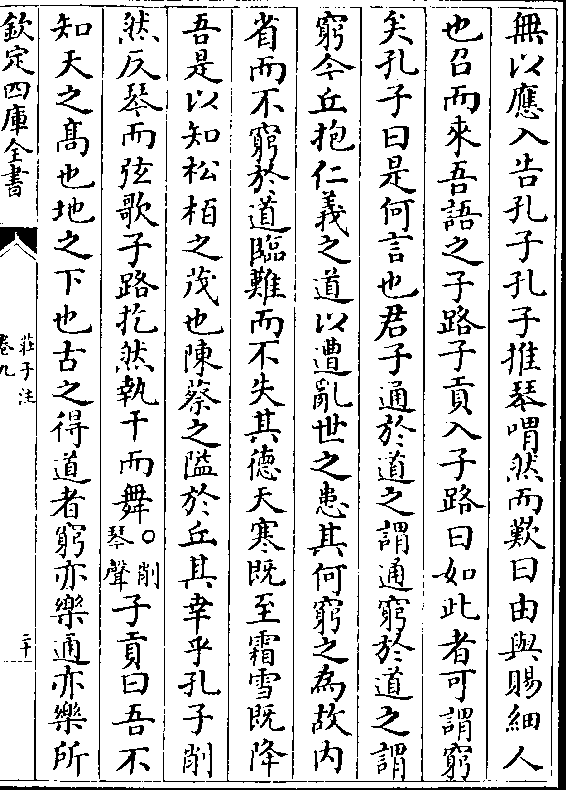 無以應入告孔子孔子推琴喟然而歎曰由與賜細人
也召而來吾語之子路子貢入子路曰如此者可謂窮
矣孔子曰是何言也君子通於道之謂通窮於道之謂
窮今丘抱仁義之道以遭亂世之患其何窮之為故内
省而不窮於道臨難而不失其德天寒既至霜雪既降
吾是以知松栢之茂也陳蔡之隘於丘其幸乎孔子削
然反琴而弦歌子路扢然執干而舞○削琴聲子貢曰吾不
知天之髙也地之下也古之得道者窮亦樂通亦樂所
欽定四庫全書
莊子注
卷九
二十